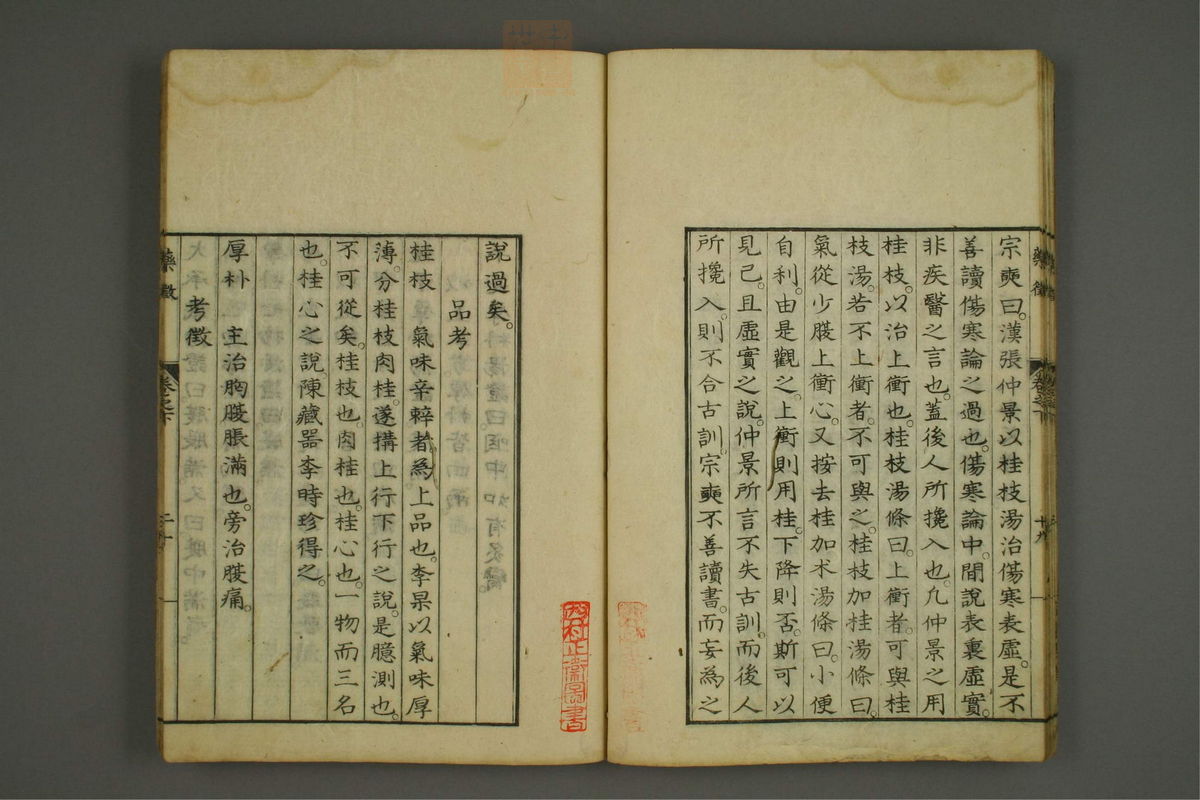 宗奭曰。漢張仲景以桂枝湯治傷寒表虛。是不
善讀傷寒論之過也。傷寒論中。間說表裏虛實。
非疾醫之言也。蓋後人所攙入也。凡仲景之用
桂枝。以治上衝也。桂枝湯條曰。上衝者。可與桂
枝湯。若不上衝者。不可與之。桂枝加桂湯條曰。
氣從少腹上衝心。又按去桂加朮湯條曰。小便
自利。由是觀之。上衝則用桂。下降則否。斯可以
見已。且虛實之說。仲景所言不失古訓。而後人
所攙入。則不合古訓。宗奭不善讀書。而妄為之
藥徵
卷之下
十九
說過矣。
品考
桂枝 氣味辛辣者為上品也。李杲以氣味厚
薄。分桂枝肉桂。遂搆上行下行之說。是臆測也。
不可從矣。桂枝也。肉桂也。桂心也。一物而三名
也。桂心之說。陳藏器李時珍得之。
厚朴 主治胸腹脹滿也。旁治腹痛。
考徵
藥徵
卷之下
二十